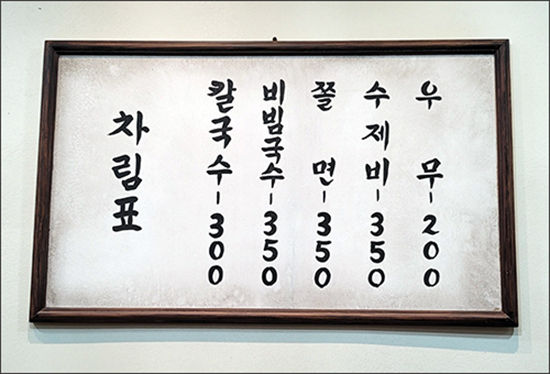 차림표
칼국수-300
비빔국수-350
쫄면-350
수제비-350
우무-200